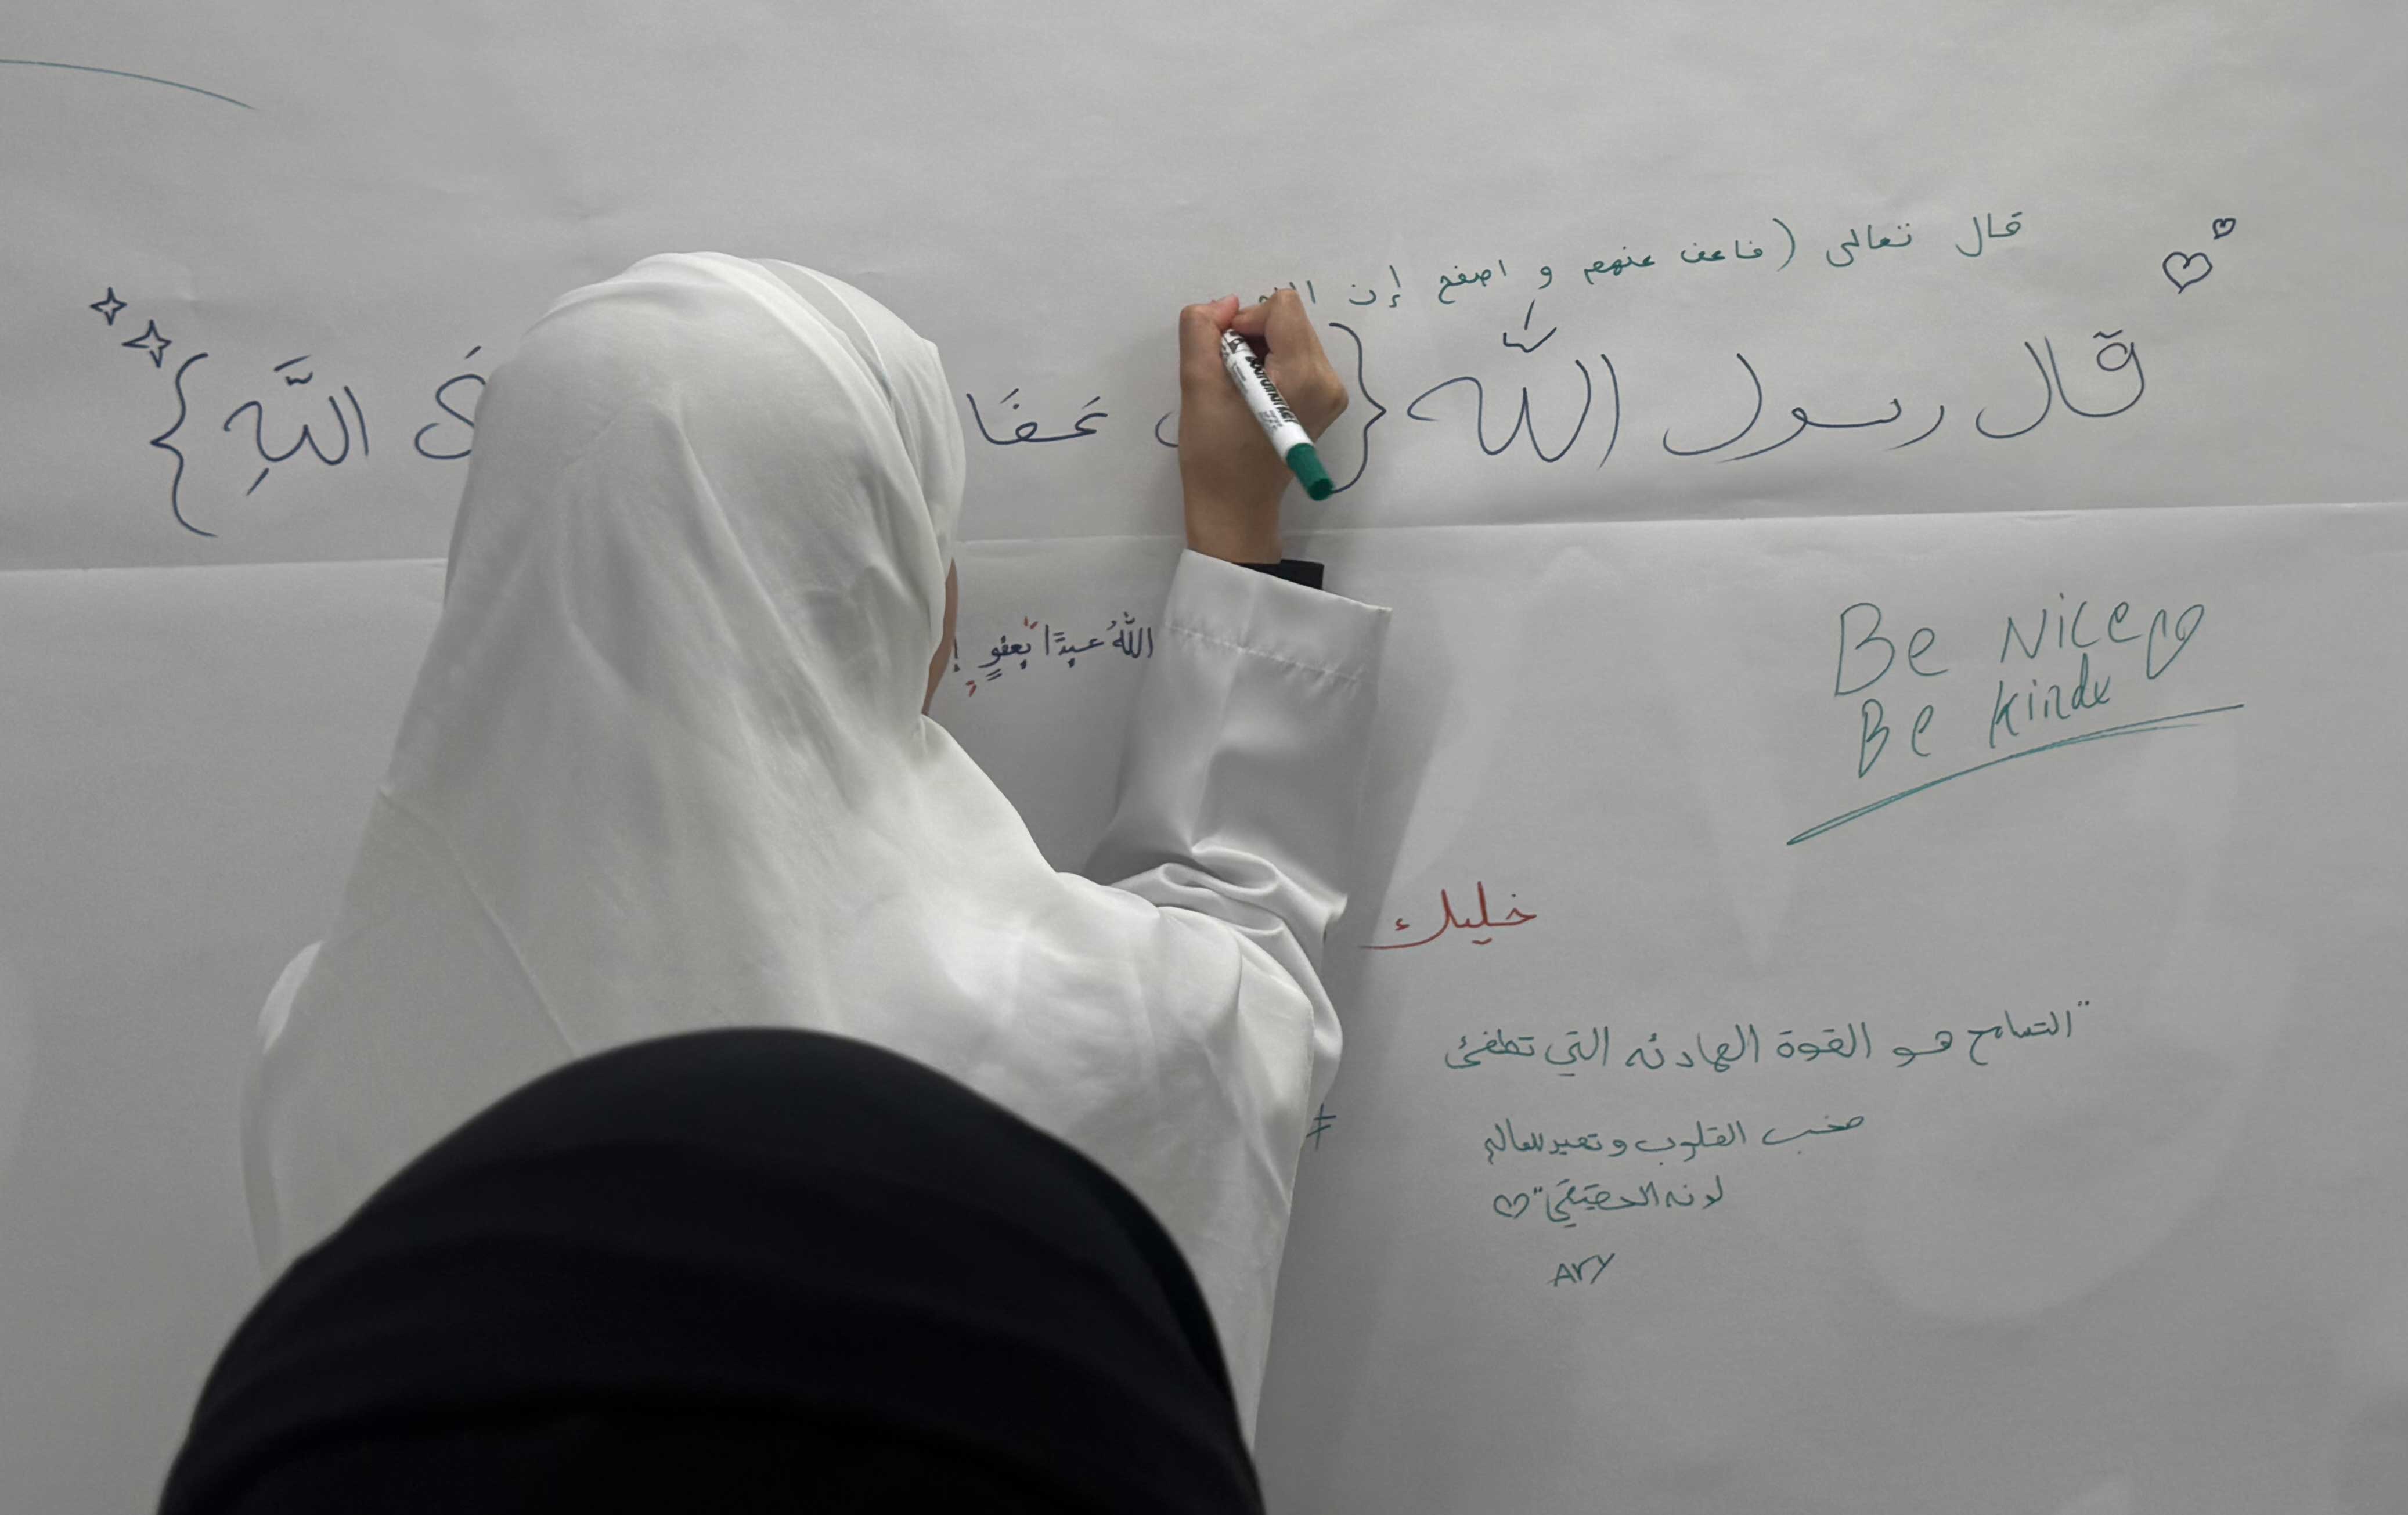 قال تعالى (فاعف عنهم و اصفح إن
قَال رسول اللّٰه { عَفَا اللَّهِ }
اللّٰهُ عبدًا بعفوٍ
Be Nice
Be kind
خليك
"التسامح هو القوة الهادئه التي تطفئ
صخب القلوب و تعيد للعالم
لونه الحقيقي"
ARY